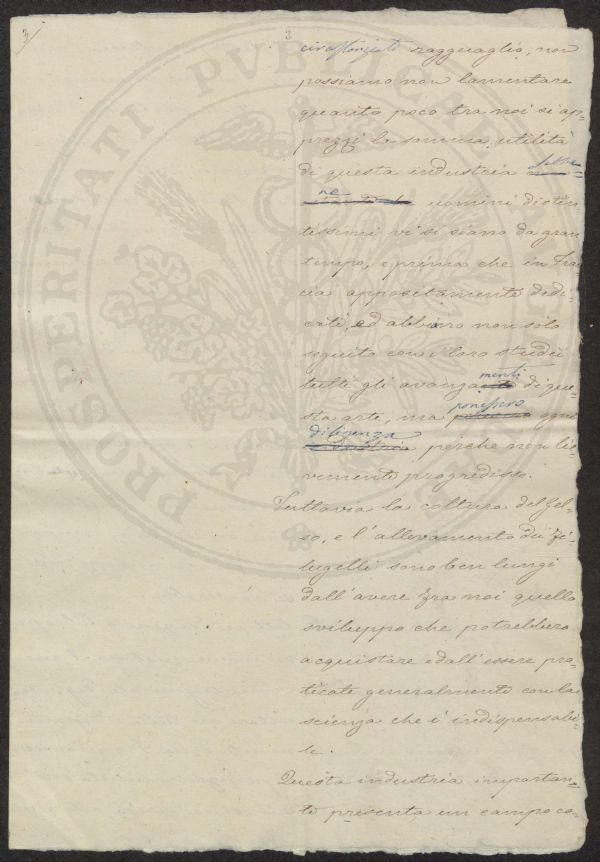 3
3
circostanziato ragguaglio, non
possiamo non lamentare
quanto poco tra noi si ap-
prezzi la somma utilità
di questa industria sebbe-
ne uomini distin-
tissimi vi si siano da gran
tempo, e prima che in Fran-
cia appositamente dedi-
cati, ed abbiano non solo
seguito con i loro studii
tutti gli avanzamenti di que-
sta arte, ma ponessero ogni
diligenza perchè non lie-
vemente progredisse.
Tuttavia la coltura del gel-
so, e l'allevamento dei fi-
lugelli sono ben lungi
dall'avere fra noi quello
sviluppo che potrebbero
acquistare e dall'essere pra-
ticate generalmente con la
scienza che è indispensabi-
le.
Questa industria importan-
te presenta un campo co-
PROSPERITATI PUBLICAE AUG